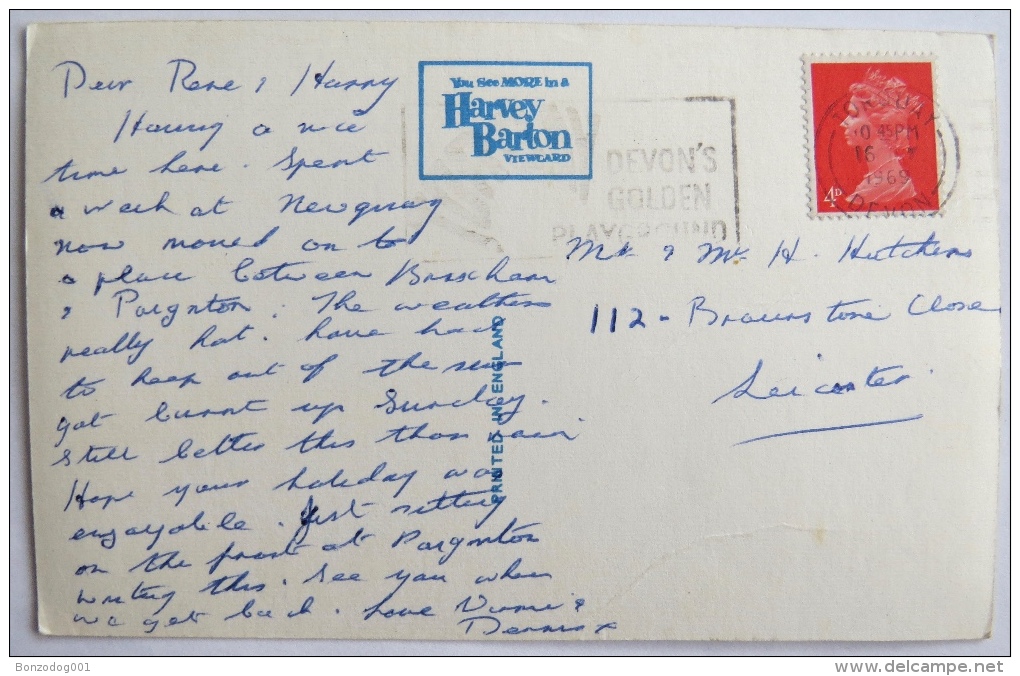 Dear Rene & Harry
Having a nice
time here. Spent
a week at Newquay
now moved on to
a place between Brixham
& Paignton. The weathers
really hot. have had
to keep out of the sun
got burnt up Sunday.
still better this than rain
Hope your holiday was
enjoyable. Just sitting
on the front at Paignton
writing this. See you when
we get back. Love &
Dennis x
You See MORE in a
Harvey
Barton
VIEWCARD
DEVON'S
GOLDEN
PLAYGROUND
TORQUAY
45PM
16
1969
DEVON
4D
PRINTED IN ENGLAND
Mr & Mrs H. Hutchens
112 - Braunstone Close
Leicester
Bonzodog001
delcampe.net